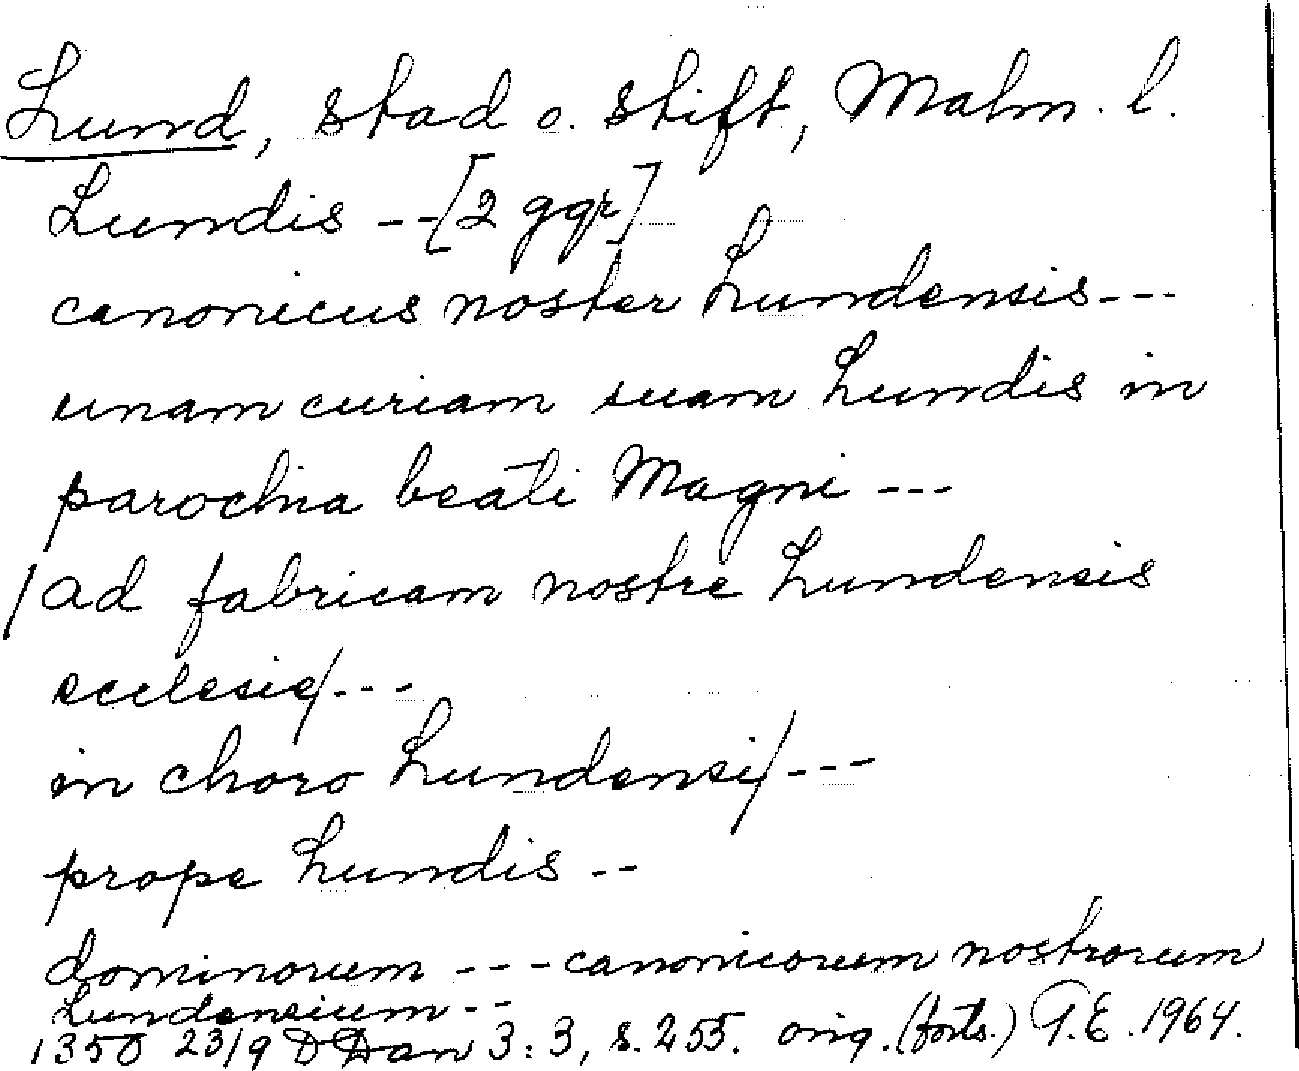 Lund, stad o. stift, Malm. l.
Lundis --[2 ggr]
canonicus noster Lundensis---
unam curiam suam Lundis in
parochia beati Magni ---
/ad fabricam nostre Lundensis
ecclesie/---
in choro Lundensi/---
prope Lundis --
dominorum --- canonicorum nostrorum
Lundensium --
1350 23/9 DDan 3:3, s. 255. orig. (forts.) G.E. 1964.